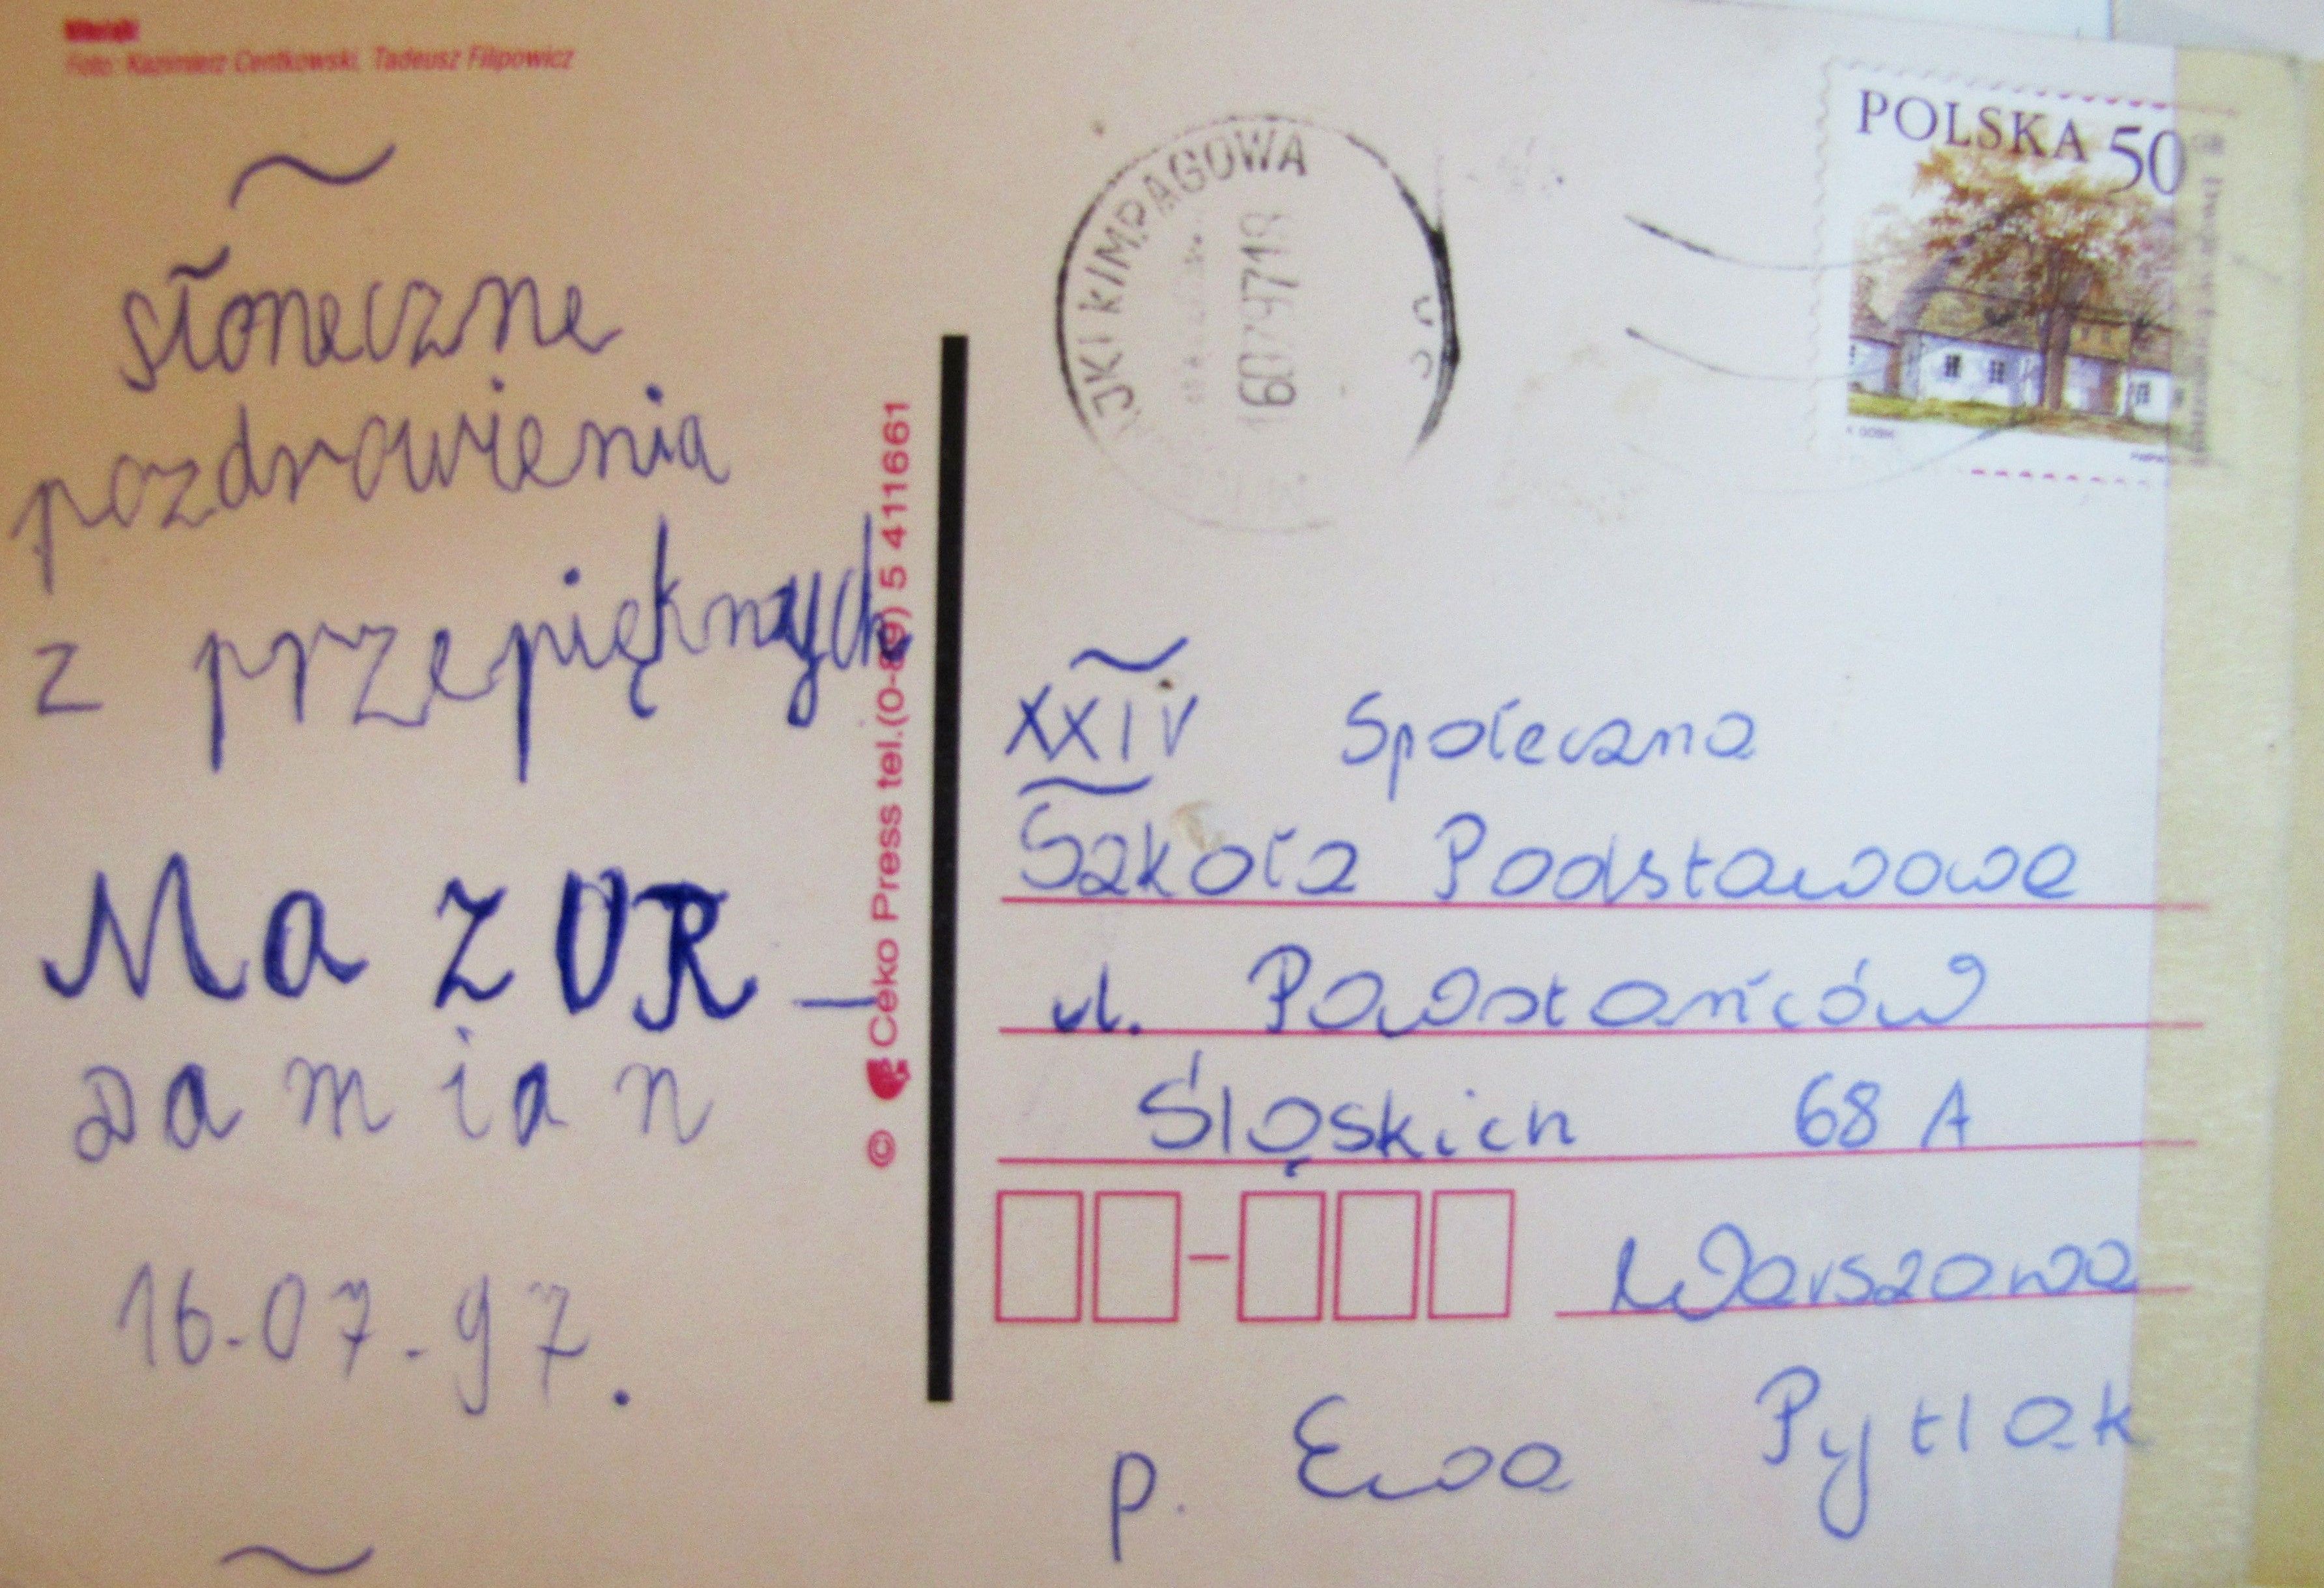 Mikołajki
Foto: Kazimierz Centkowski, Tadeusz Filipowicz
~
słoneczne
pozdrowienia
z przepięknych
MaZUR –
Damian
16.07.97.
~
© Ceko Press tel.(0-89) 5 411661
JKI KIMPAGOWA
POLSKA 50
XXIV Społeczna
Szkoła Podstawowa
ul. Powstańców
Śląskich 68 A
Warszawa
p. Ewa Pytlak